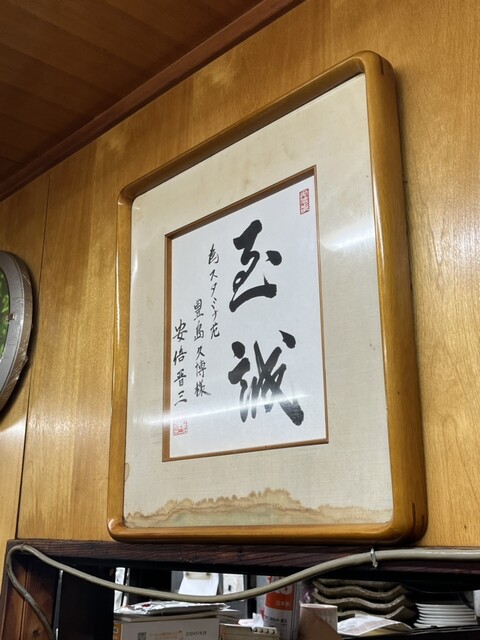 至誠
スタミナ苑
豊島久博様
安倍晋三